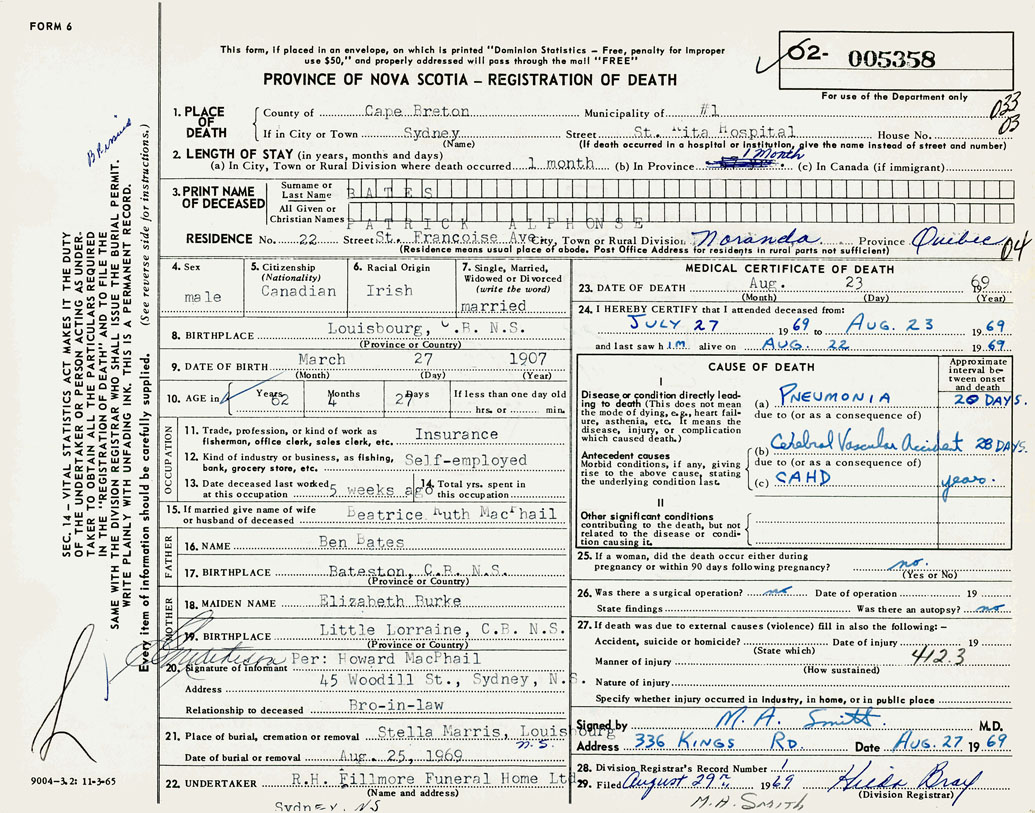 FORM 6
This form, if placed in an envelope, on which is printed "Dominion Statistics – Free, penalty for improper
use $50," and properly addressed will pass through the mail "FREE"
PROVINCE OF NOVA SCOTIA – REGISTRATION OF DEATH
62- 005358
For use of the Department only
033
03
1. PLACE OF DEATH
County of Cape Breton Municipality of #1
If in City or Town Sydney Street St. Rita Hospital House No.
(Name) (If death occurred in a hospital or institution, give the name instead of street and number)
2. LENGTH OF STAY (in years, months and days)
(a) In City, Town or Rural Division where death occurred 1 month (b) In Province 1 Month (c) In Canada (if immigrant)
3. PRINT NAME OF DECEASED
Surname or Last Name BATES
All Given or Christian Names PATRICK ALPHONSE
RESIDENCE No. 22 Street St. Francoise Ave. City, Town or Rural Division Noranda Province Quebec 04
(Residence means usual place of abode. Post Office Address for residents in rural parts not sufficient)
4. Sex
male
5. Citizenship
(Nationality)
Canadian
6. Racial Origin
Irish
7. Single, Married, Widowed or Divorced
(write the word)
married
8. BIRTHPLACE Louisbourg, C.B. N.S.
(Province or Country)
9. DATE OF BIRTH March 27 1907
(Month) (Day) (Year)
10. AGE in Years 62 Months 4 Days 27 If less than one day old
hrs. or min.
OCCUPATION
11. Trade, profession, or kind of work as fisherman, office clerk, sales clerk, etc. Insurance
12. Kind of industry or business, as fishing, bank, grocery store, etc. Self-employed
13. Date deceased last worked at this occupation 5 weeks ago 14. Total yrs. spent in this occupation
15. If married give name of wife or husband of deceased Beatrice Ruth MacPhail
FATHER
16. NAME Ben Bates
17. BIRTHPLACE Bateston, C.B. N.S.
(Province or Country)
MOTHER
18. MAIDEN NAME Elizabeth Burke
19. BIRTHPLACE Little Lorraine, C.B. N.S.
(Province or Country)
20. Signature of informant Per: Howard MacPhail
Address 45 Woodill St., Sydney, N.S.
Relationship to deceased Bro-in-law
21. Place of burial, cremation or removal Stella Marris, Louisbourg
N.S.
Date of burial or removal Aug. 25, 1969
22. UNDERTAKER R.H. Fillmore Funeral Home Ltd.
(Name and address)
Sydney, NS
MEDICAL CERTIFICATE OF DEATH
23. DATE OF DEATH Aug. 23 1969
(Month) (Day) (Year)
24. I HEREBY CERTIFY that I attended deceased from:
JULY 27 1969 to AUG. 23 1969
and last saw him alive on AUG. 22 1969
CAUSE OF DEATH
Approximate interval between onset and death
I
Disease or condition directly leading to death (This does not mean the mode of dying, e.g., heart failure, asthenia, etc. It means the disease, injury, or complication which caused death.)
(a) PNEUMONIA 20 DAYS.
due to (or as a consequence of)
Antecedent causes
Morbid conditions, if any, giving rise to the above cause, stating the underlying condition last.
(b) Cerebral Vascular Accident 28 DAYS.
due to (or as a consequence of)
(c) CAHD years.
II
Other significant conditions
contributing to the death, but not related to the disease or condition causing it.
25. If a woman, did the death occur either during pregnancy or within 90 days following pregnancy? no.
(Yes or No)
26. Was there a surgical operation? no Date of operation 19
State findings Was there an autopsy? no
27. If death was due to external causes (violence) fill in also the following: –
Accident, suicide or homicide? Date of injury 19
(State which) 412.3
Manner of injury
(How sustained)
Nature of injury
Specify whether injury occurred in industry, in home, or in public place
Signed by M. A. Smith. M.D.
Address 336 KINGS RD. Date AUG. 27 1969
28. Division Registrar's Record Number 1
29. Filed August 29th 1969 Hilda Bray
(Division Registrar)
M.A. SMITH
SEC. 14 – VITAL STATISTICS ACT MAKES IT THE DUTY
OF THE UNDERTAKER OR PERSON ACTING AS UNDER-
TAKER TO OBTAIN ALL THE PARTICULARS REQUIRED
IN THE "REGISTRATION OF DEATH" AND TO FILE THE
SAME WITH THE DIVISION REGISTRAR WHO SHALL ISSUE THE BURIAL PERMIT.
WRITE PLAINLY WITH UNFADING INK. THIS IS A PERMANENT RECORD.
Every item of information should be carefully supplied. (See reverse side for instructions.)
9004-3.2: 11-3-65